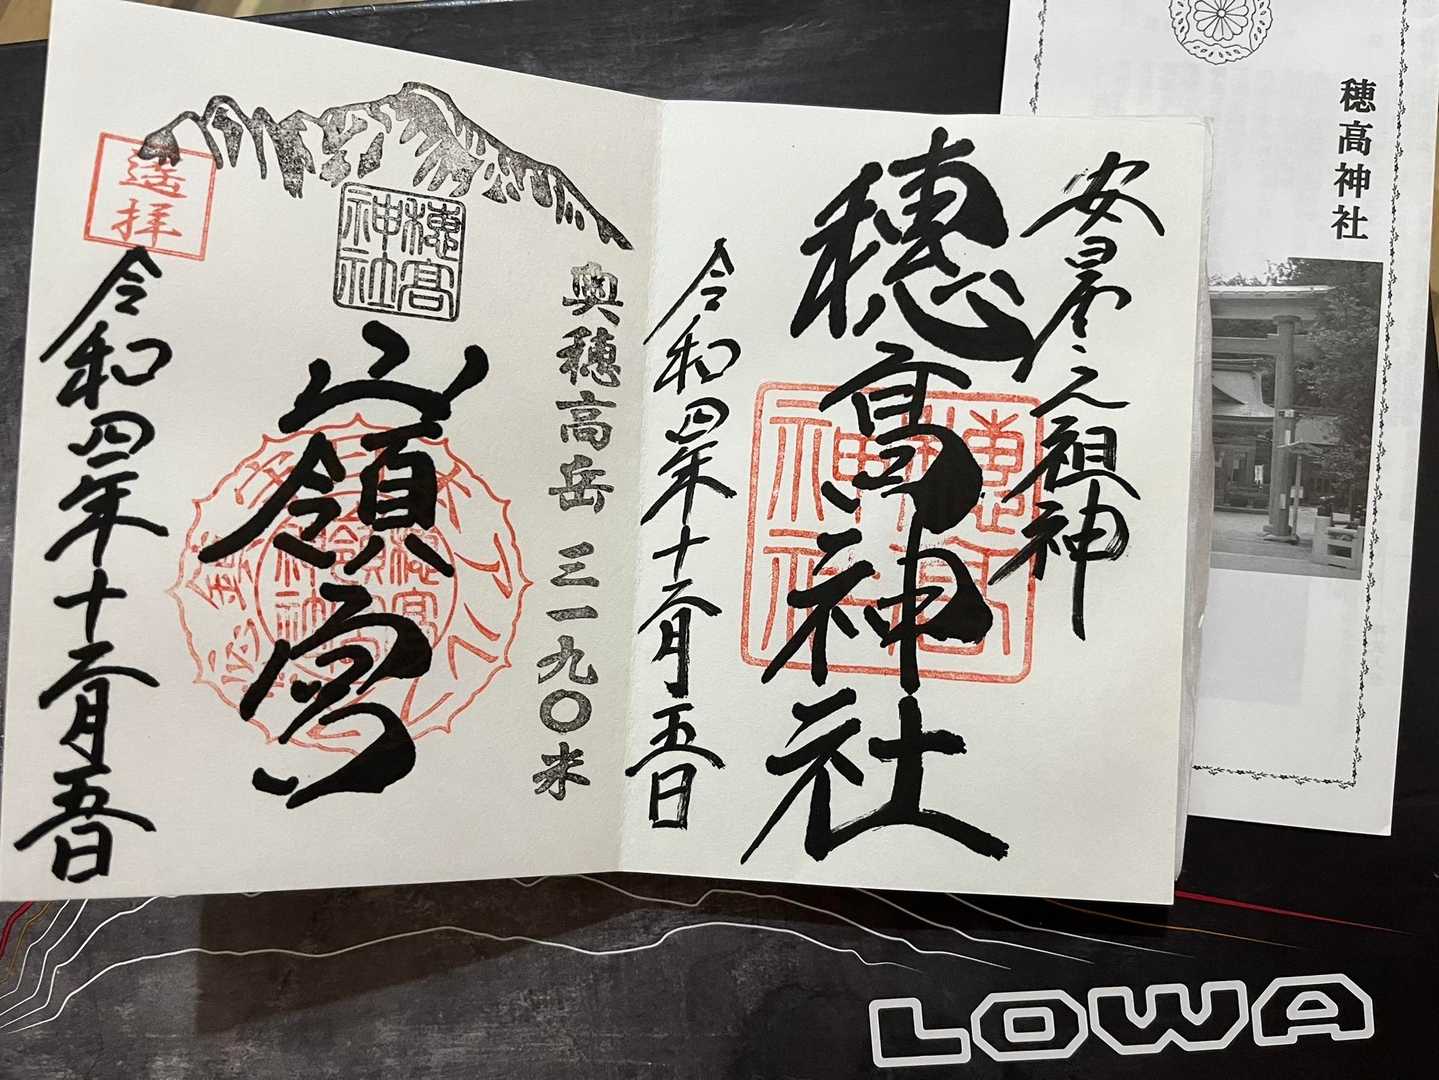 穂高神社
安曇之祖神
穂高神社
穂高神社
令和四年十一月五日
奥穂高岳 三一九〇米
穂高神社
嶺宮
遥拝
令和四年十一月五日
LOWA